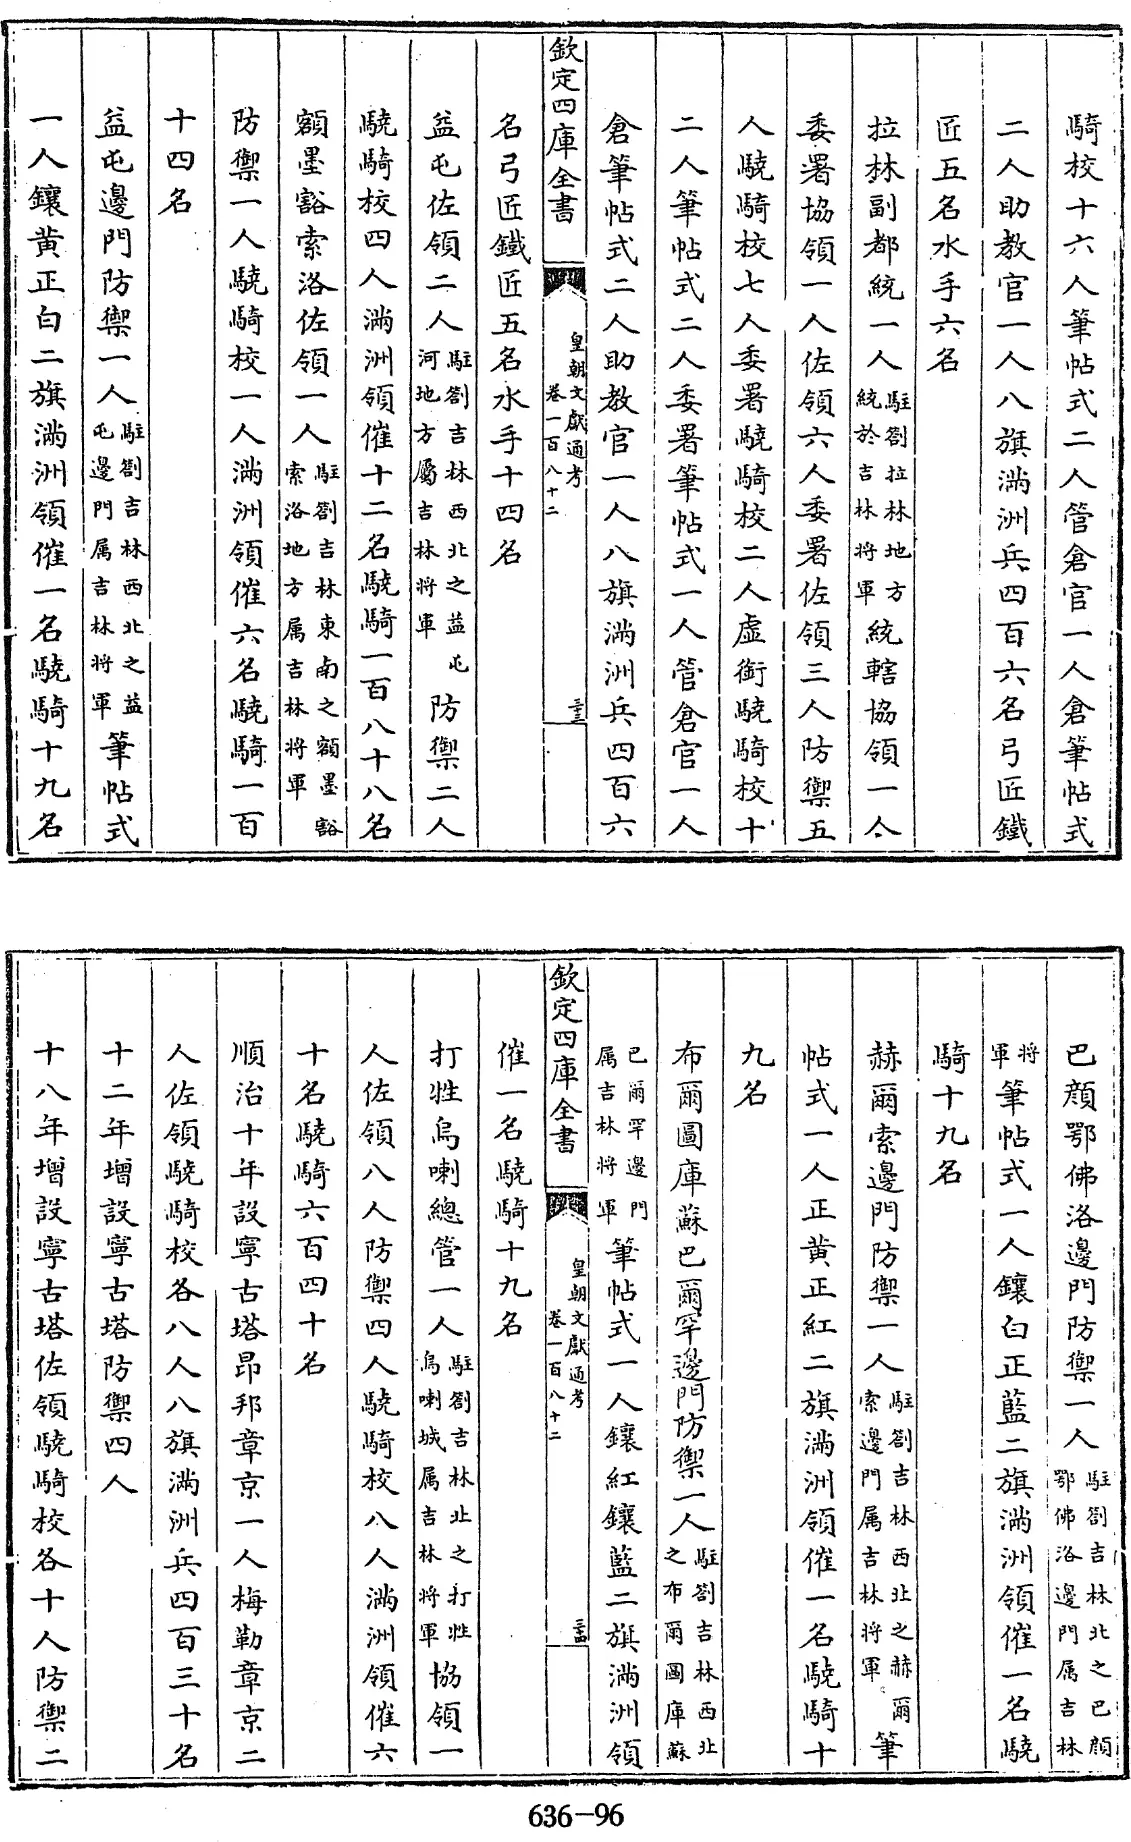 騎校十六人筆帖式二人管倉官一人倉筆帖式
二人助教官一人八旗滿洲兵四百六名弓匠鐵
匠五名水手六名
拉林副都統一人駐劄拉林地方統於吉林將軍統轄協領一人
委署協領一人佐領六人委署佐領三人防禦五
人驍騎校七人委署驍騎校二人虛銜驍騎校十
二人筆帖式二人委署筆帖式一人管倉官一人
倉筆帖式二人助教官一人八旗滿洲兵四百六
欽定四庫全書
皇朝文獻通考
卷一百八十二
三三
名弓匠鐵匠五名水手十四名
益屯佐領二人駐劄吉林西北之益屯河地方屬吉林將軍防禦二人
驍騎校四人滿洲領催十二名驍騎一百八十八名
額墨豁索洛佐領一人駐劄吉林東南之額墨豁索洛地方属吉林將軍
防禦一人驍騎校一人滿洲領催六名驍騎一百
十四名
益屯邊門防禦一人駐劄吉林西北之益屯邊門属吉林將軍筆帖式
一人鑲黃正白二旗滿洲領催一名驍騎十九名
巴顏鄂佛洛邊門防禦一人駐劄吉林北之巴顏鄂佛洛邊門属吉林
將軍筆帖式一人鑲白正藍二旗滿洲領催一名驍
騎十九名
赫爾索邊門防禦一人駐劄吉林西北之赫爾索邊門属吉林將軍筆
帖式一人正黃正紅二旗滿洲領催一名驍騎十
九名
布爾圖庫蘇巴爾罕邊門防禦一人駐劄吉林西北之布爾圖庫蘇
巴爾罕邊門属吉林將軍筆帖式一人鑲紅鑲藍二旗滿洲領
欽定四庫全書
皇朝文獻通考
卷一百八十二
三四
催一名驍騎十九名
打牲烏喇總管一人駐劄吉林北之打牲烏喇城属吉林將軍協領一
人佐領八人防禦四人驍騎校八人滿洲領催六
十名驍騎六百四十名
順治十年設寧古塔昂邦章京一人梅勒章京二
人佐領驍騎校各八人八旗滿洲兵四百三十名
十二年增設寧古塔防禦四人
十八年增設寧古塔佐領驍騎校各十人防禦二
636-96